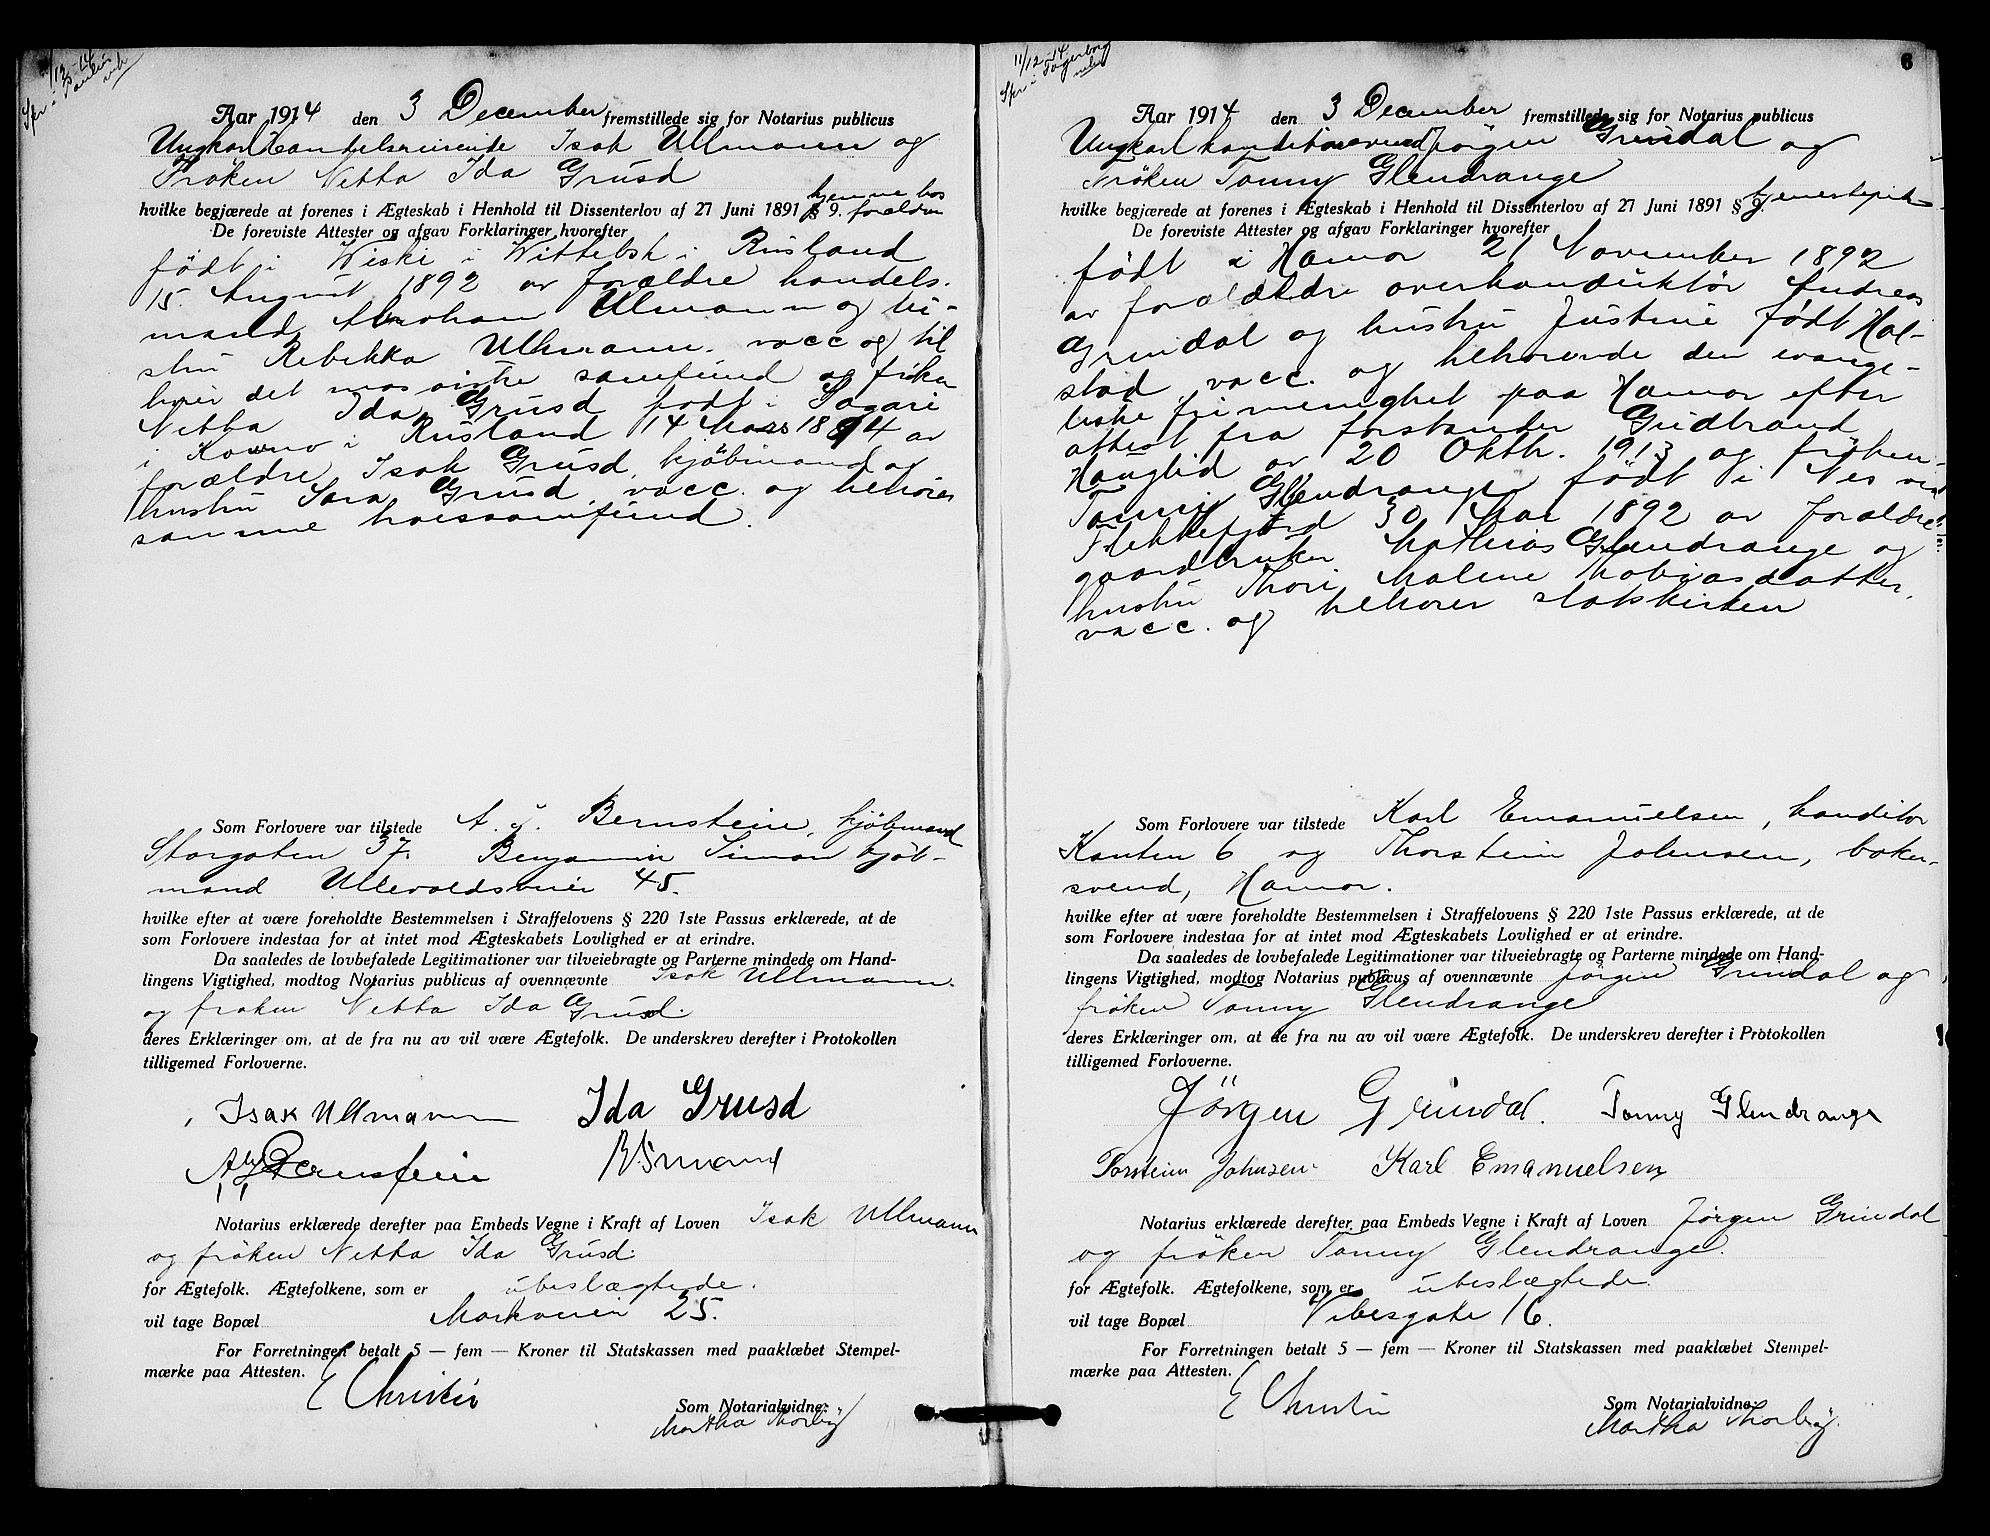 Aar 1914 den 3 December fremstillede sig for Notarius publicus
Ungkarl Handelsreisende Isak Ullmann og
Frøken Netta Ida Grusd
hjemme hos
hvilke begjærede at forenes i Ægteskab i Henhold til Dissenterlov af 27 Juni 1891 § 9. forældre
De foreviste Attester og afgav Forklaringer hvorefter
født i Weski i Wittebsk i Rusland
15 August 1892 av forældre handels-
mand Abraham Ullmann og hu-
stru Rebekka Ullmann. vacc og til
hører det mosaiske samfund og frøken
Netta Ida Grusd født i Sagari
i Kowno i Rusland 14 Mars 1894 av
forældre Isak Grusd, kjøbmand og
hustru Sara Grusd, vacc. og tilhører
samme trossamfund.
Som Forlovere var tilstede A. J. Bernstein, kjøbmand
Storgaten 37. Benjamin Siman kjøb-
mand Ullevoldsveien 45.
hvilke efter at være foreholdte Bestemmelsen i Straffelovens § 220 1ste Passus erklærede, at de
som Forlovere indestaa for at intet mod Ægteskabets Lovlighed er at erindre.
Da saaledes de lovbefalede Legitimationer var tilveiebragte og Parterne mindede om Hand-
lingens Vigtighed, modtog Notarius publicus af ovennævnte Isak Ullmann.
og frøken Netta Ida Grusd.
deres Erklæringer om, at de fra nu av vil være Ægtefolk. De underskrev derefter i Protokollen
tilligemed Forloverne.
Isak Ullmann Ida Grusd
Bernstein
Notarius erklærede derefter paa Embeds Vegne i Kraft af Loven Isak Ullmann
og frøken Netta Ida Grusd.
for Ægtefolk. Ægtefolkene, som er ubeslægtede.
vil tage Bopæl Markveien 25.
For Forretningen betalt 5 — fem — Kroner til Statskassen med paaklæbet Stempel-
mærke paa Attesten.
E Christie
Som Notarialvidne:
Martha Thorbjø
11/12-14
Spr i Fagerborg
6
Aar 1914 den 3 December fremstillede sig for Notarius publicus
Ungkarl konditorsvend Jörgen Grindal og
Frøken Tonny Glendrange
hvilke begjærede at forenes i Ægteskab i Henhold til Dissenterlov af 27 Juni 1891 § 9. tjenestepike
De foreviste Attester og afgav Forklaringer hvorefter
født i Hamar 21 November 1892
av forældre overkonduktør Andreas
Grindal og hustru Justine født Hal-
stad, vacc. og tilhørende den evange-
liske frimenighet paa Hamar efter
attest fra forstander Gudbrand
Hauglid av 20 Oktb. 1913 og frøken
Tonny Glendrange født i Nes ved
Flekkefjord 30 Mai 1892 av forældre
gaardbruker Mathias Glendrange og
hustru Thori Malene Thobiasdatter.
vacc. og tilhører statskirken
Som Forlovere var tilstede Karl Emanuelsen, konditor
Kanten 6 og Thorstein Johnsen, baker-
svend, Hamar.
hvilke efter at være foreholdte Bestemmelsen i Straffelovens § 220 1ste Passus erklærede, at de
som Forlovere indestaa for at intet mod Ægteskabets Lovlighed er at erindre.
Da saaledes de lovbefalede Legitimationer var tilveiebragte og Parterne mindede om Hand-
lingens Vigtighed, modtog Notarius publicus af ovennævnte Jörgen Grindal og
frøken Tonny Glendrange
deres Erklæringer om, at de fra nu av vil være Ægtefolk. De underskrev derefter i Protokollen
tilligemed Forloverne.
Jörgen Grindal. Tonny Glendrange
Torstein Johnsen. Karl Emanuelsen
Notarius erklærede derefter paa Embeds Vegne i Kraft af Loven Jörgen Grindal
og frøken Tonny Glendrange.
for Ægtefolk. Ægtefolkene, som er ubeslægtede.
vil tage Bopæl Vibesgate 16.
For Forretningen betalt 5 — fem — Kroner til Statskassen med paaklæbet Stempel-
mærke paa Attesten.
E Christie
Som Notarialvidne:
Martha Thorbjø